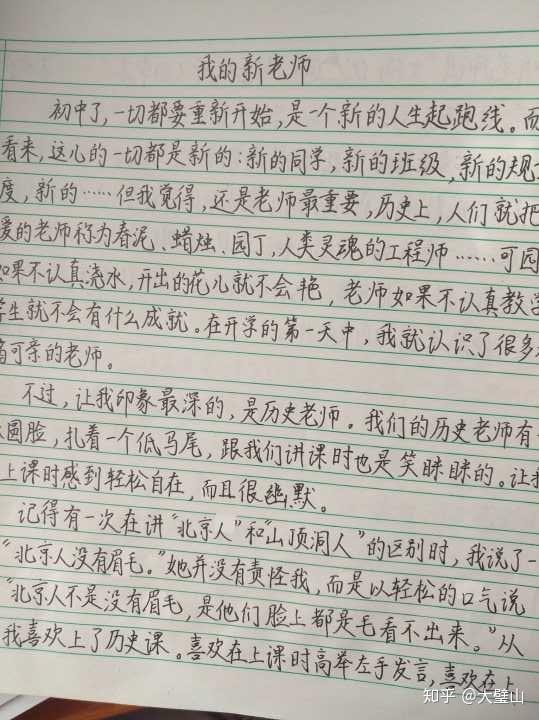 我的新老师
初中了,一切都要重新开始,是一个新的人生起跑线。而
看来,这儿的一切都是新的:新的同学,新的班级,新的规
度,新的……但我觉得,还是老师最重要,历史上,人们就把
爱的老师称为春泥、蜡烛、园丁,人类灵魂的工程师……可园
如果不认真浇水,开出的花儿就不会艳,老师如果不认真教学
学生就不会有什么成就。在开学的第一天中,我就认识了很多
可亲的老师。
不过,让我印象最深的,是历史老师。我们的历史老师有
圆脸,扎着一个低马尾,跟我们讲课时也是笑眯眯的。让我
上课时感到轻松自在,而且很幽默。
记得有一次在讲“北京人”和“山顶洞人”的区别时,我说了一
“北京人没有眉毛。”她并没有责怪我,而是以轻松的口气说
“北京人不是没有眉毛,是他们脸上都是毛看不出来。”从
我喜欢上了历史课。喜欢在上课时高举左手发言,喜欢在上
知乎 @大璧山